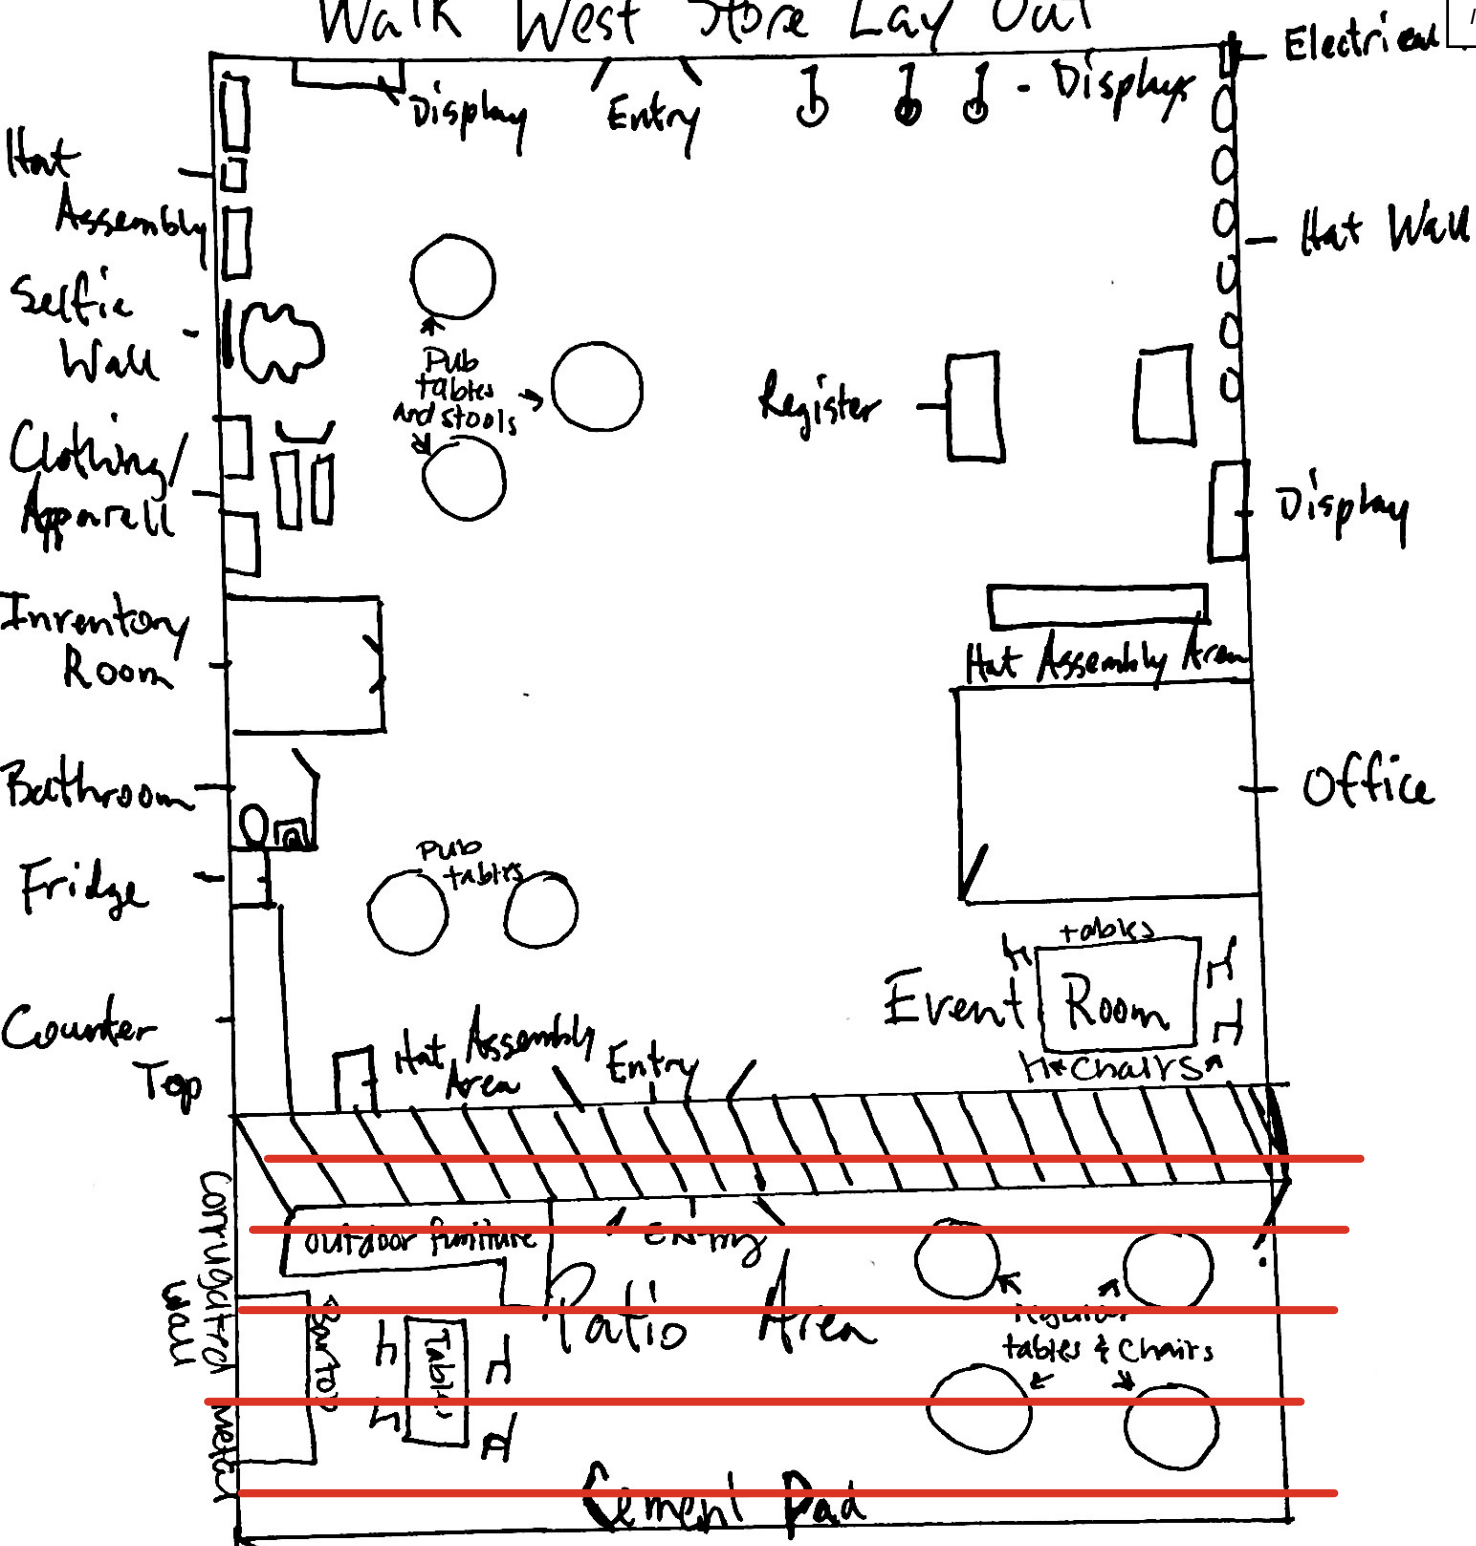 Walk West Store Lay Out
Electrical
Display
Entry
- Displays
Hat
Assembly
Hat Wall
Selfie
Wall
Pub
tables
and stools
Register
Clothing/
Apparell
Display
Inventory
Room
Hat Assembly Area
Bathroom
Office
Fridge
Pub
tables
tables
Event Room
Chairs
Counter
Top
Hat Assembly
Area
Entry
Corrugated metal
wall
outdoor furniture
Entry
Patio Area
Regular
tables & Chairs
Bar top
Table
Cement Pad